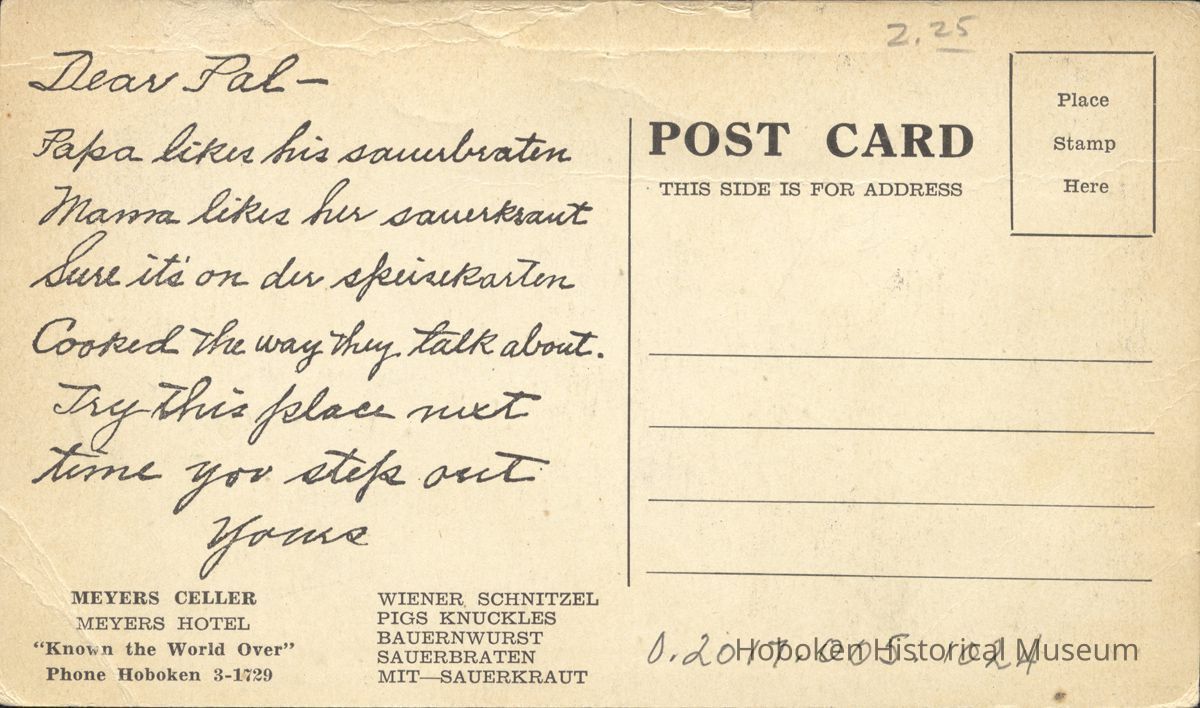 2.25
Dear Pal—
Papa likes his sauerbraten
Mama likes her sauerkraut
Sure it's on der speisekarten
Cooked the way they talk about.
Try this place next
time you step out
Yours
MEYERS CELLER
MEYERS HOTEL
"Known the World Over"
Phone Hoboken 3-1729
WIENER SCHNITZEL
PIGS KNUCKLES
BAUERNWURST
SAUERBRATEN
MIT—SAUERKRAUT
POST CARD
THIS SIDE IS FOR ADDRESS
Place
Stamp
Here
0.2017.005.024
Hoboken Historical Museum